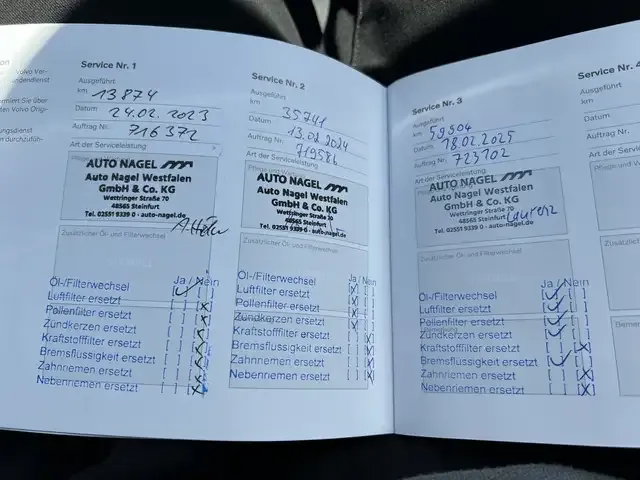 Service Nr. 1
Ausgeführt
km 13874
Datum 24.02.2023
Auftrag Nr. 716372
Art der Serviceleistung
AUTO NAGEL
Auto Nagel Westfalen
GmbH & Co. KG
Wettringer Straße 70
48565 Steinfurt
Tel. 02551 9339 0 - auto-nagel.de
Zusätzlicher Öl- und Filterwechsel
Öl-/Filterwechsel Ja / Nein
Luftfilter ersetzt
Pollenfilter ersetzt
Zündkerzen ersetzt
Kraftstofffilter ersetzt
Bremsflüssigkeit ersetzt
Zahnriemen ersetzt
Nebenriemen ersetzt
Service Nr. 2
Ausgeführt
km 35741
Datum 13.02.2024
Auftrag Nr. 719586
Art der Serviceleistung
AUTO NAGEL
Auto Nagel Westfalen
GmbH & Co. KG
Wettringer Straße 70
48565 Steinfurt
Tel. 02551 9339 0 - auto-nagel.de
Zusätzlicher Öl- und Filterwechsel
Öl-/Filterwechsel Ja / Nein
Luftfilter ersetzt
Pollenfilter ersetzt
Zündkerzen ersetzt
Kraftstofffilter ersetzt
Bremsflüssigkeit ersetzt
Zahnriemen ersetzt
Nebenriemen ersetzt
Service Nr. 3
Ausgeführt
km 59904
Datum 18.02.2025
Auftrag Nr. 723702
Art der Serviceleistung
AUTO NAGEL
Auto Nagel Westfalen
GmbH & Co. KG
Wettringer Straße 70
48565 Steinfurt
Tel. 02551 9339 0 - auto-nagel.de
Laurenz
Zusätzlicher Öl- und Filterwechsel
Öl-/Filterwechsel Ja / Nein
Luftfilter ersetzt
Pollenfilter ersetzt
Zündkerzen ersetzt
Kraftstofffilter ersetzt
Bremsflüssigkeit ersetzt
Zahnriemen ersetzt
Nebenriemen ersetzt
Service Nr. 4
Ausgeführt
km
Datum
Auftrag Nr.